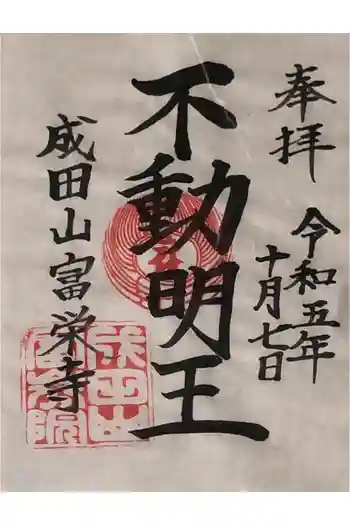 奉拝
令和五年
十月七日
不動明王
成田山富栄寺